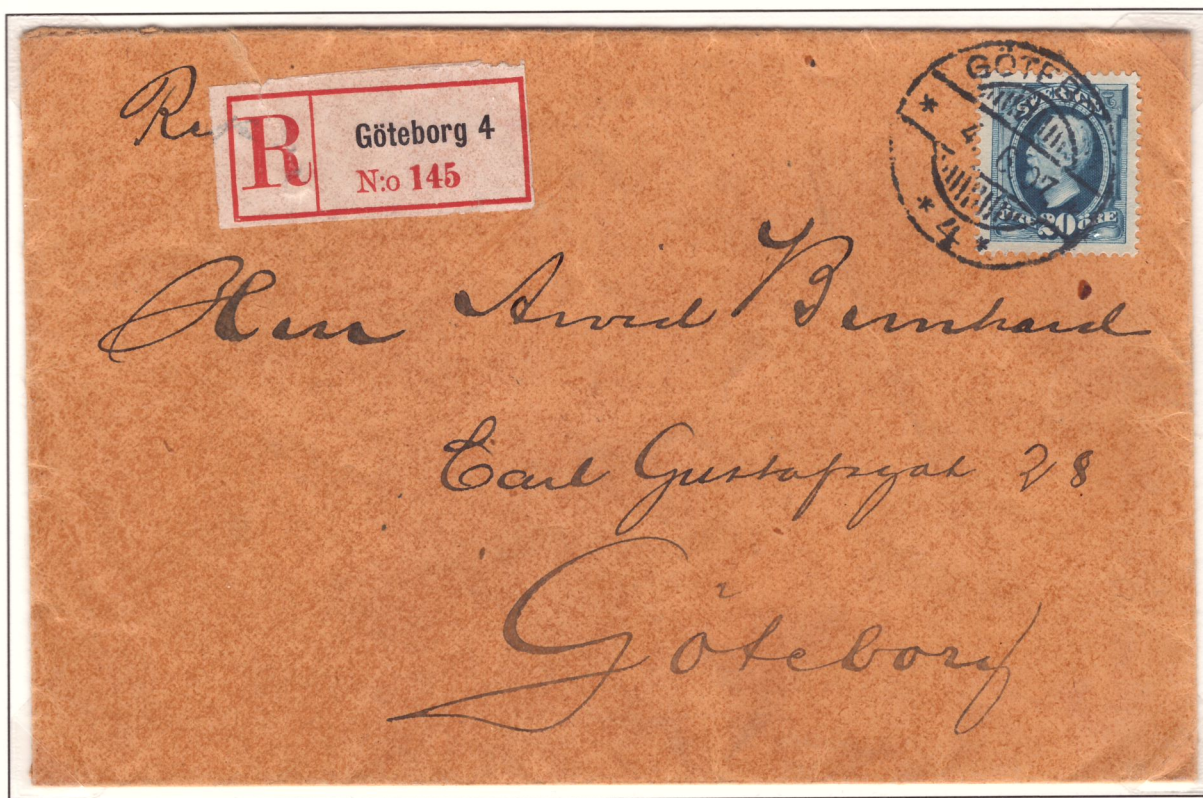 R
Göteborg 4
N:o 145
GÖTEB
4
07
* 4 *
ÖRE
Herr Arvid Bernhard
Carl Gustafsgat 28
Göteborg